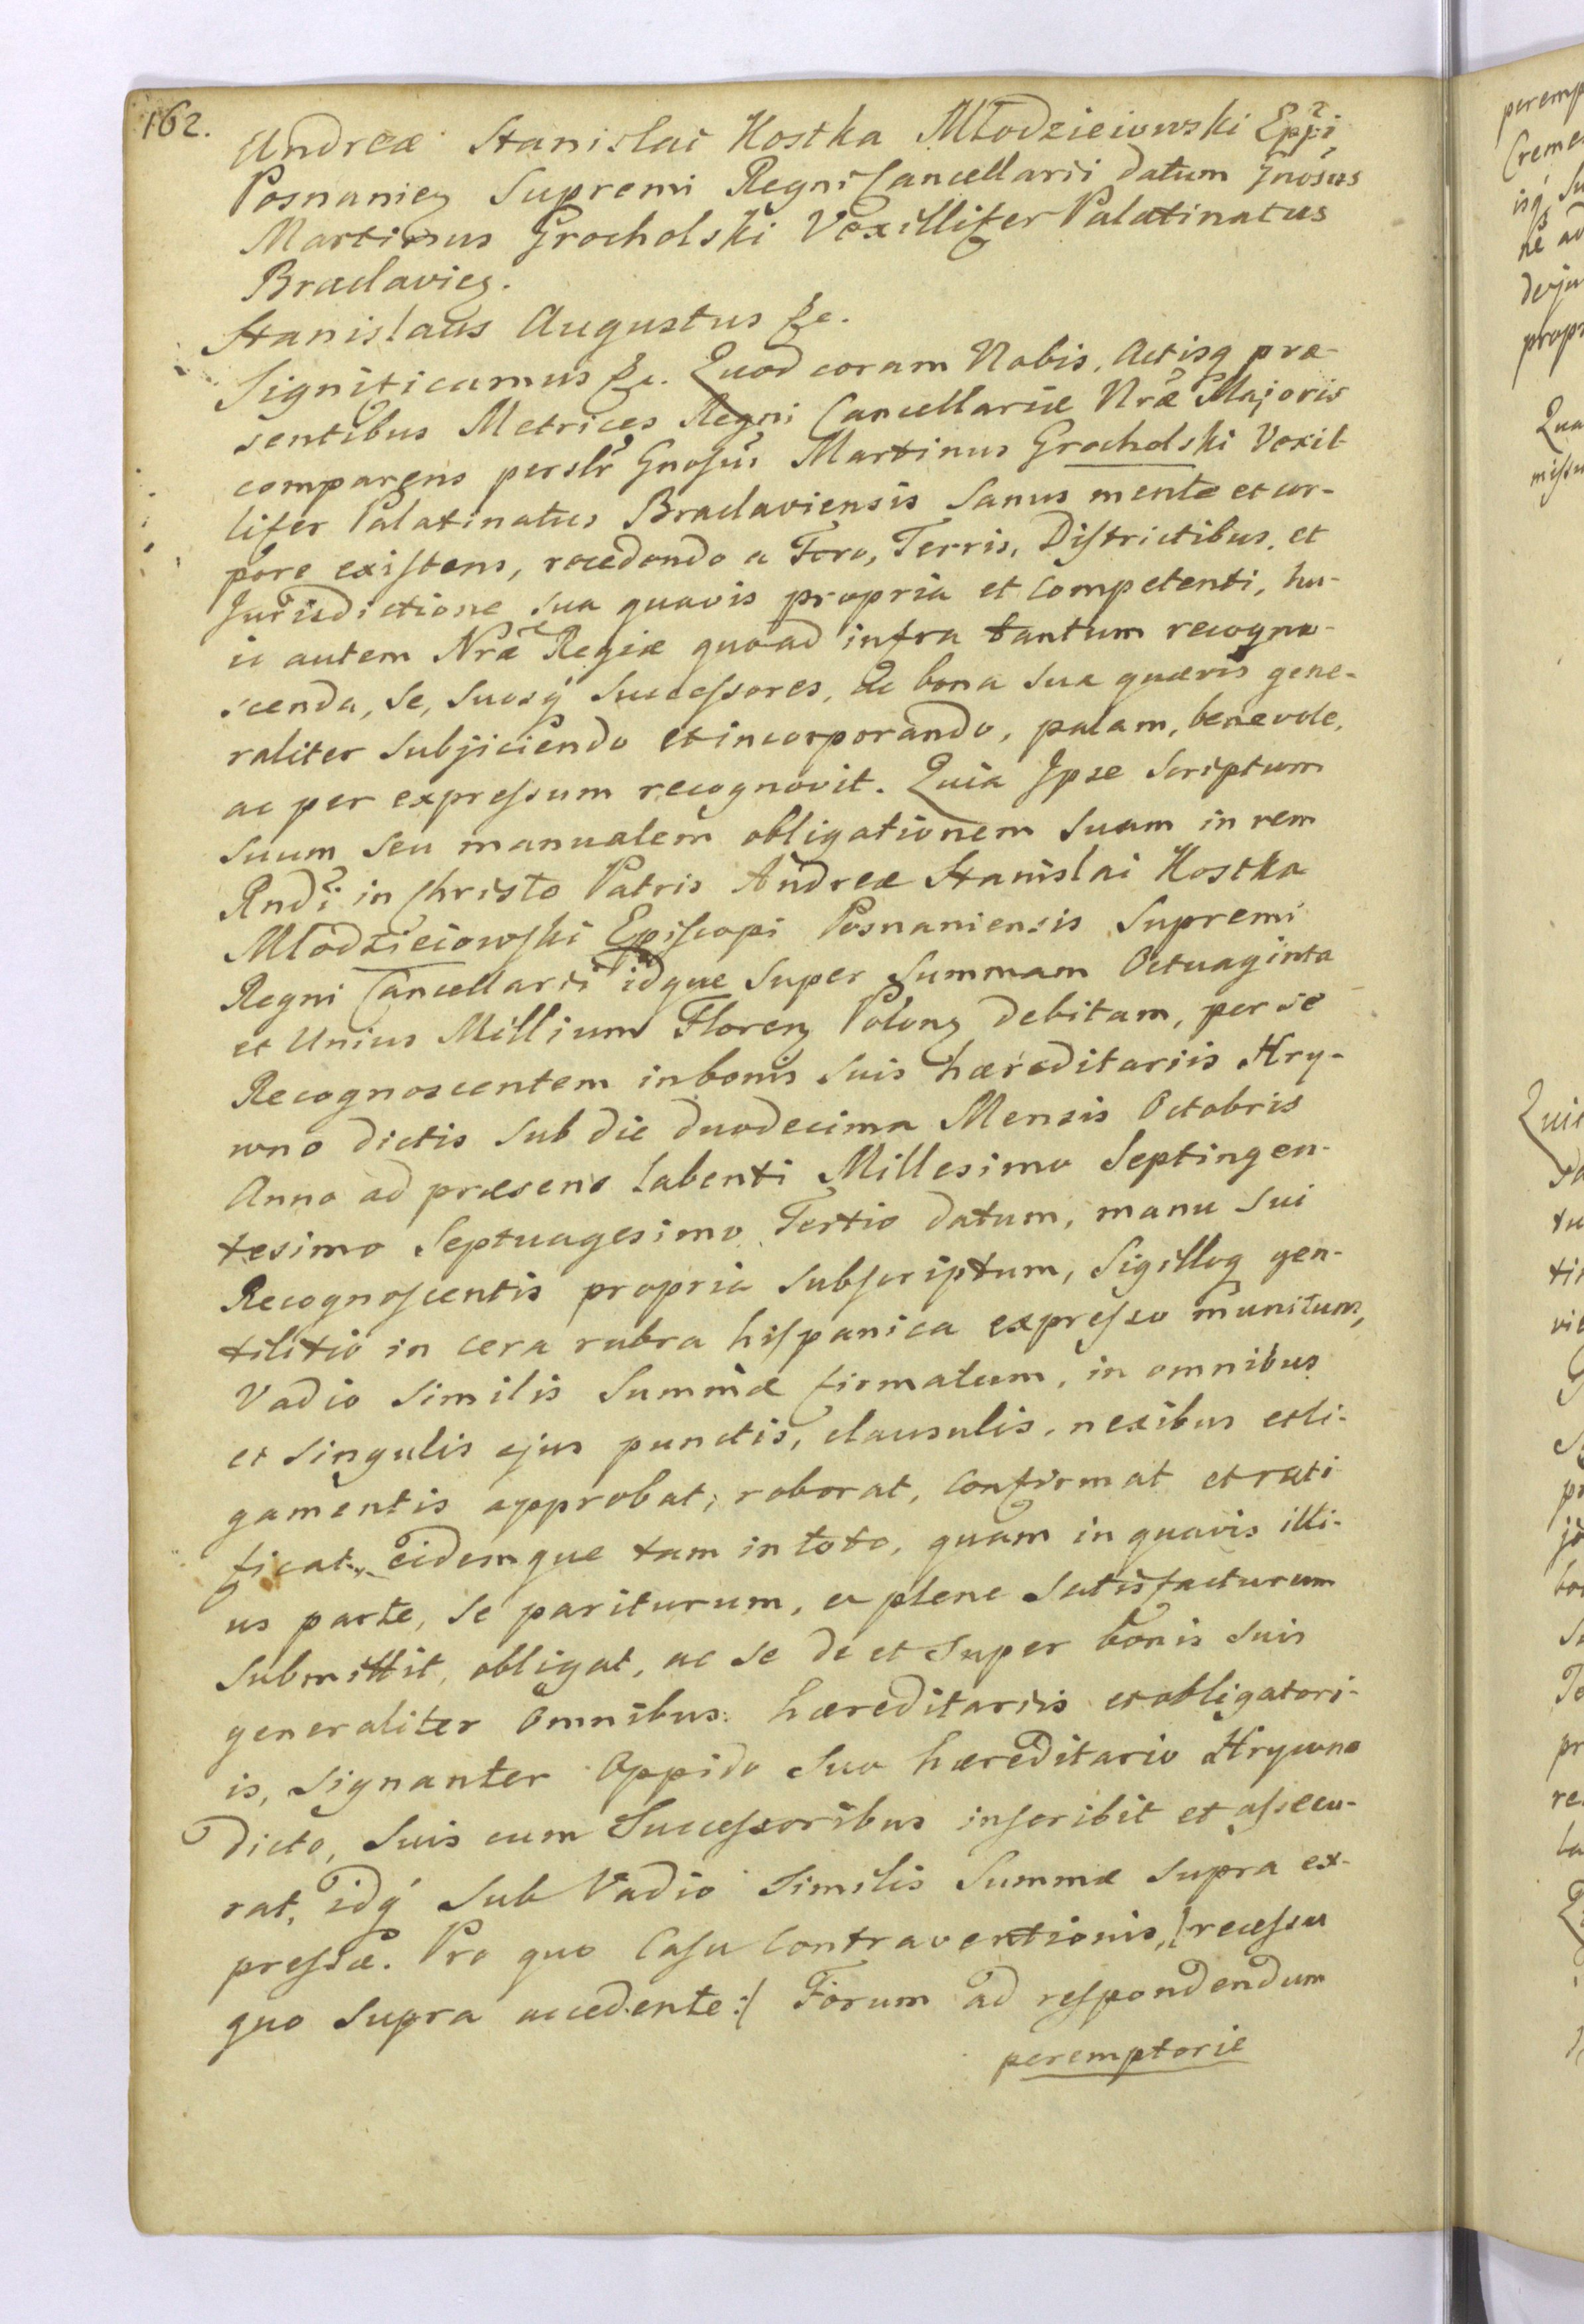 162.
Andreæ Stanislai Kostka Młodzieiowski Eppi
Posnaniez Supremi Regni Cancellarii datum Gnosus
Martinus Grocholski Vexillifer Palatinatus
Braclaviez.
Stanislaus Augustus &c.
Significamus &c. Quod coram Nobis, Actisq præ-
sentibus Metrices Regni Cancellariæ Nræ Majoris
comparens perslr Gnosus Martinus Grocholski Vexil
lifer Palatinatus Braclaviensis Sanus mente et cor-
pore existens, recedendo a Foro, Terris, Districtibus, et
Jurisdictione sua quavis propria et Competenti, hu-
ic autem Nræ Regiæ quoad infra tantum recogno-
scenda, se, suosq Successores, ac bona sua quævis gene-
raliter subjiciendo et incorporando, palam, benevole,
ac per expressum recognovit. Quia Ipse Scriptum
suum seu manualem obligationem suam in rem
Rndi in Christo Patris Andreæ Stanislai Kostka
Młodzieiowski Episcopi Posnaniensis Supremi
Regni Cancellarii idque super Summam Octuaginta
et Unius Millium Florenz Polonz debitam, per se
Recognoscentem in bonis suis hæreditariis Hry-
wno dictis sub die duodecima Mensis Octobris
Anno ad præsens labenti Millesimo Septingen-
tesimo Septuagesimo Tertio datum, manu sui
Recognoscentis propria subscriptum, Sigilloq gen-
tilitio in cera rubra hispanica expresso munitum,
Vadio similis Summæ firmatum, in omnibus
et singulis ejus punctis, clausulis, nexibus et li-
gamentis approbat, roborat, Confirmat et rati
ficat, eidemque tam in toto, quam in quavis illi-
us parte, se pariturum, ac plene satisfacturum
submittit, obligat, ac se de et super bonis suis
generaliter omnibus hæreditariis et obligatori-
is, signanter Oppido suo hæreditario Hrywno
dicto, suis cum Successoribus inscribit et assecu-
rat, idq sub Vadio similis Summæ supra ex-
pressæ. Pro quo Casu Contraventionis, /recessu
quo supra accedente:/ Forum ad respondendum
peremptorie